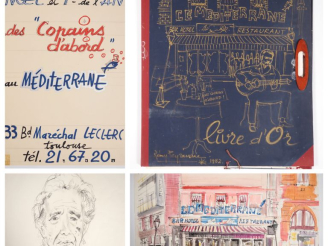 des "Copains
d'abord"
au MÉDITERRANÉ
33 Bd Maréchal LECLERC
toulouse
tél. 21.67.20
LE MÉDITERRANÉ
RESTAURANT
livre d'Or
LE MÉDITERRANÉ
RESTAURANT